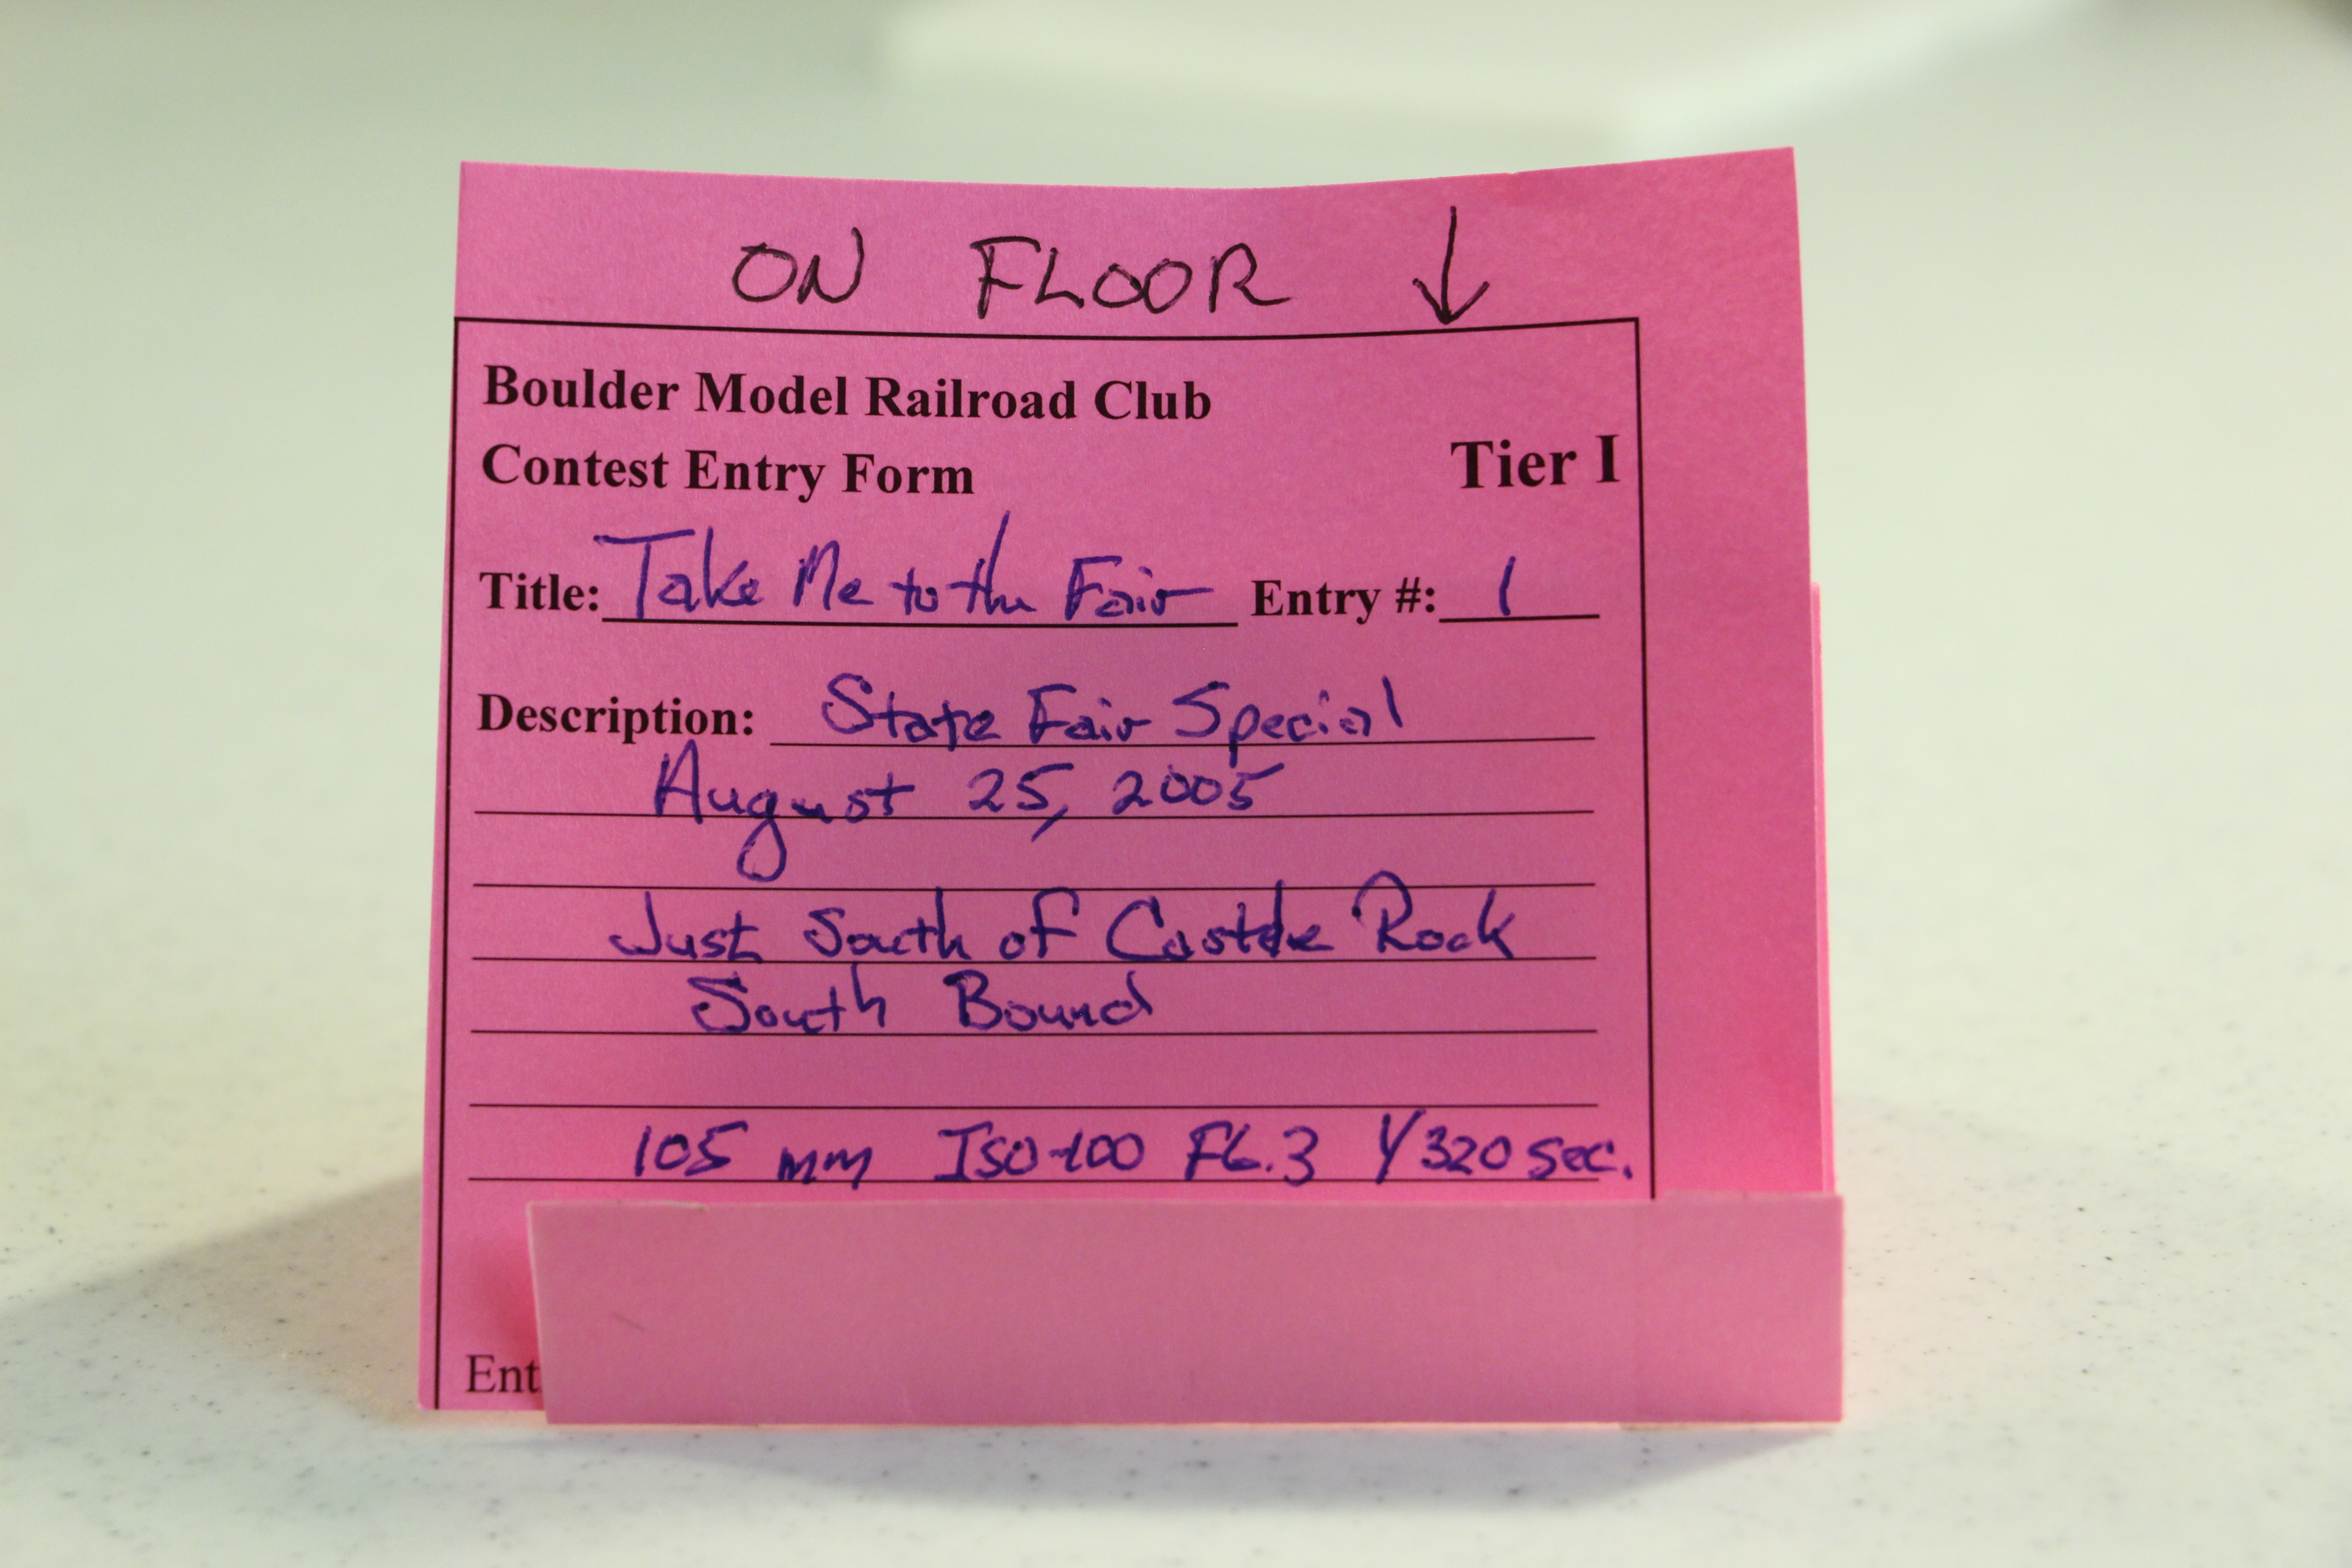 ON FLOOR ↓
Boulder Model Railroad Club
Contest Entry Form Tier I
Title: Take Me to the Fair Entry #: 1
Description: State Fair Special
August 25, 2005
Just South of Castle Rock
South Bound
105 mm ISO-100 F6.3 1/320 sec.
Ent